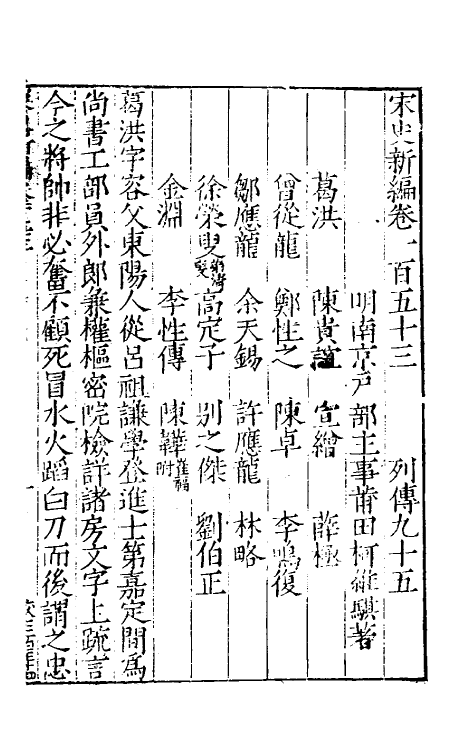 宋史新編卷一百五十三　列傳九十五
明南京戶部主事莆田柯維騏著
葛洪　陳貴誼　宣繒　薛極
曾從龍　鄭性之　陳卓　李鳴復
鄒應龍　余天錫　許應龍　林略
徐榮叟　高定子　別之傑　劉伯正
金淵　李性傳　陳韡崔福附
葛洪字容父東陽人從呂祖謙學登進士第嘉定間爲
尚書工部員外郎兼權樞密院檢詳諸房文字上疏言
今之將帥非必奮不顧死冒水火蹈白刃而後謂之忠